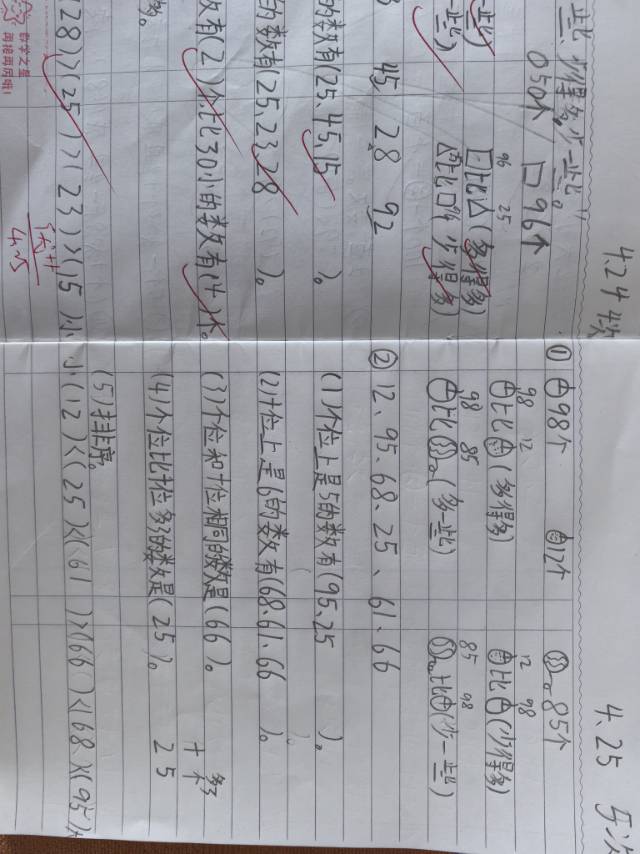 一些、少得多、少一些。"
050个 □96个
96 25
□比△(多得多)
△比□(少得多)
45 28 92
的数有(25、45、15)。
的数有(25、23、28)。
数有(2)个,比30小的数有(4)个。
28)>(25)>(23)>(15)小
数学之星
4.25
4.24
① 98个 12个 85个
98 12
比(多得多)
12 98
比(少得多)
98 85
比(多一些)
85 98
比(少一些)
② 12、95、68、25、61、66
(1)个位上是5的数有(95、25)。
(2)十位上是6的数有(68、61、66)。
(3)个位和十位相同的数是(66)。
(4)个位比十位多3的数是(25)。
十 个
多3
2 5
(5)排序。
小(12)<(25)<(61)>(66)<(68)<(95)大
4.25